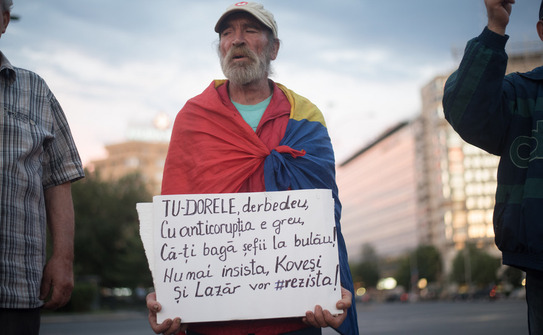 TU-DORELE, derbedeu,
Cu anticorupția e greu,
Că-ți bagă șefii la bulău!
Nu mai insista, Kovesi
și Lazăr vor #rezista!